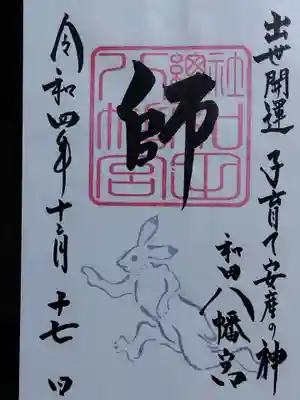 出世開運 子育て安産の神
和田八幡宮
師
總社和田八幡宮
令和四年十二月十七日